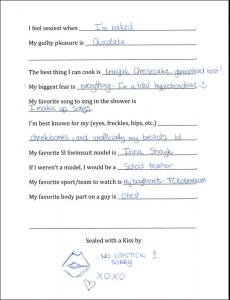 I feel sexiest when I'm naked.
My guilty pleasure is Chocolate
The best thing I can cook is Cheesecake - guaranteed best!
My biggest fear is everything - I'm a total hypochondriac
My favorite song to sing in the shower is
I make up songs.
I'm best known for my (eyes, freckles, hips, etc.)
cheekbones - and unofficially my breasts lol
My favorite SI Swimsuit model is Irina Shayk.
If I weren't a model, I would be a School teacher.
My favorite sport/team to watch is My boyfriends - FC
My favorite body part on a guy is Chest
Sealed with a Kiss by
NO LIPSTICK
SORRY
XOXO